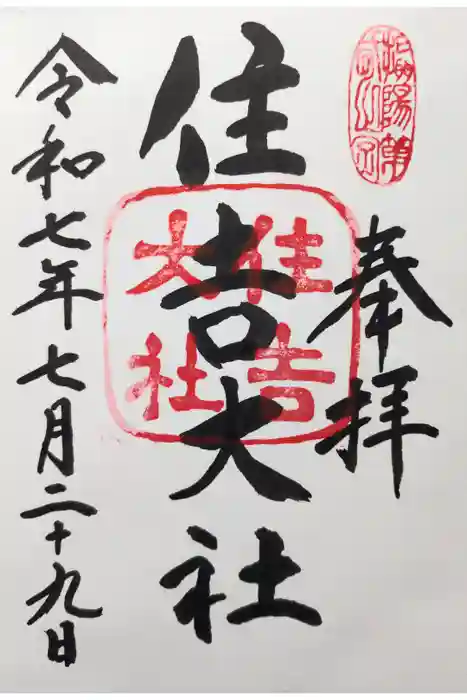 奉拝
住吉大社
住吉
大社
令和七年七月二十九日